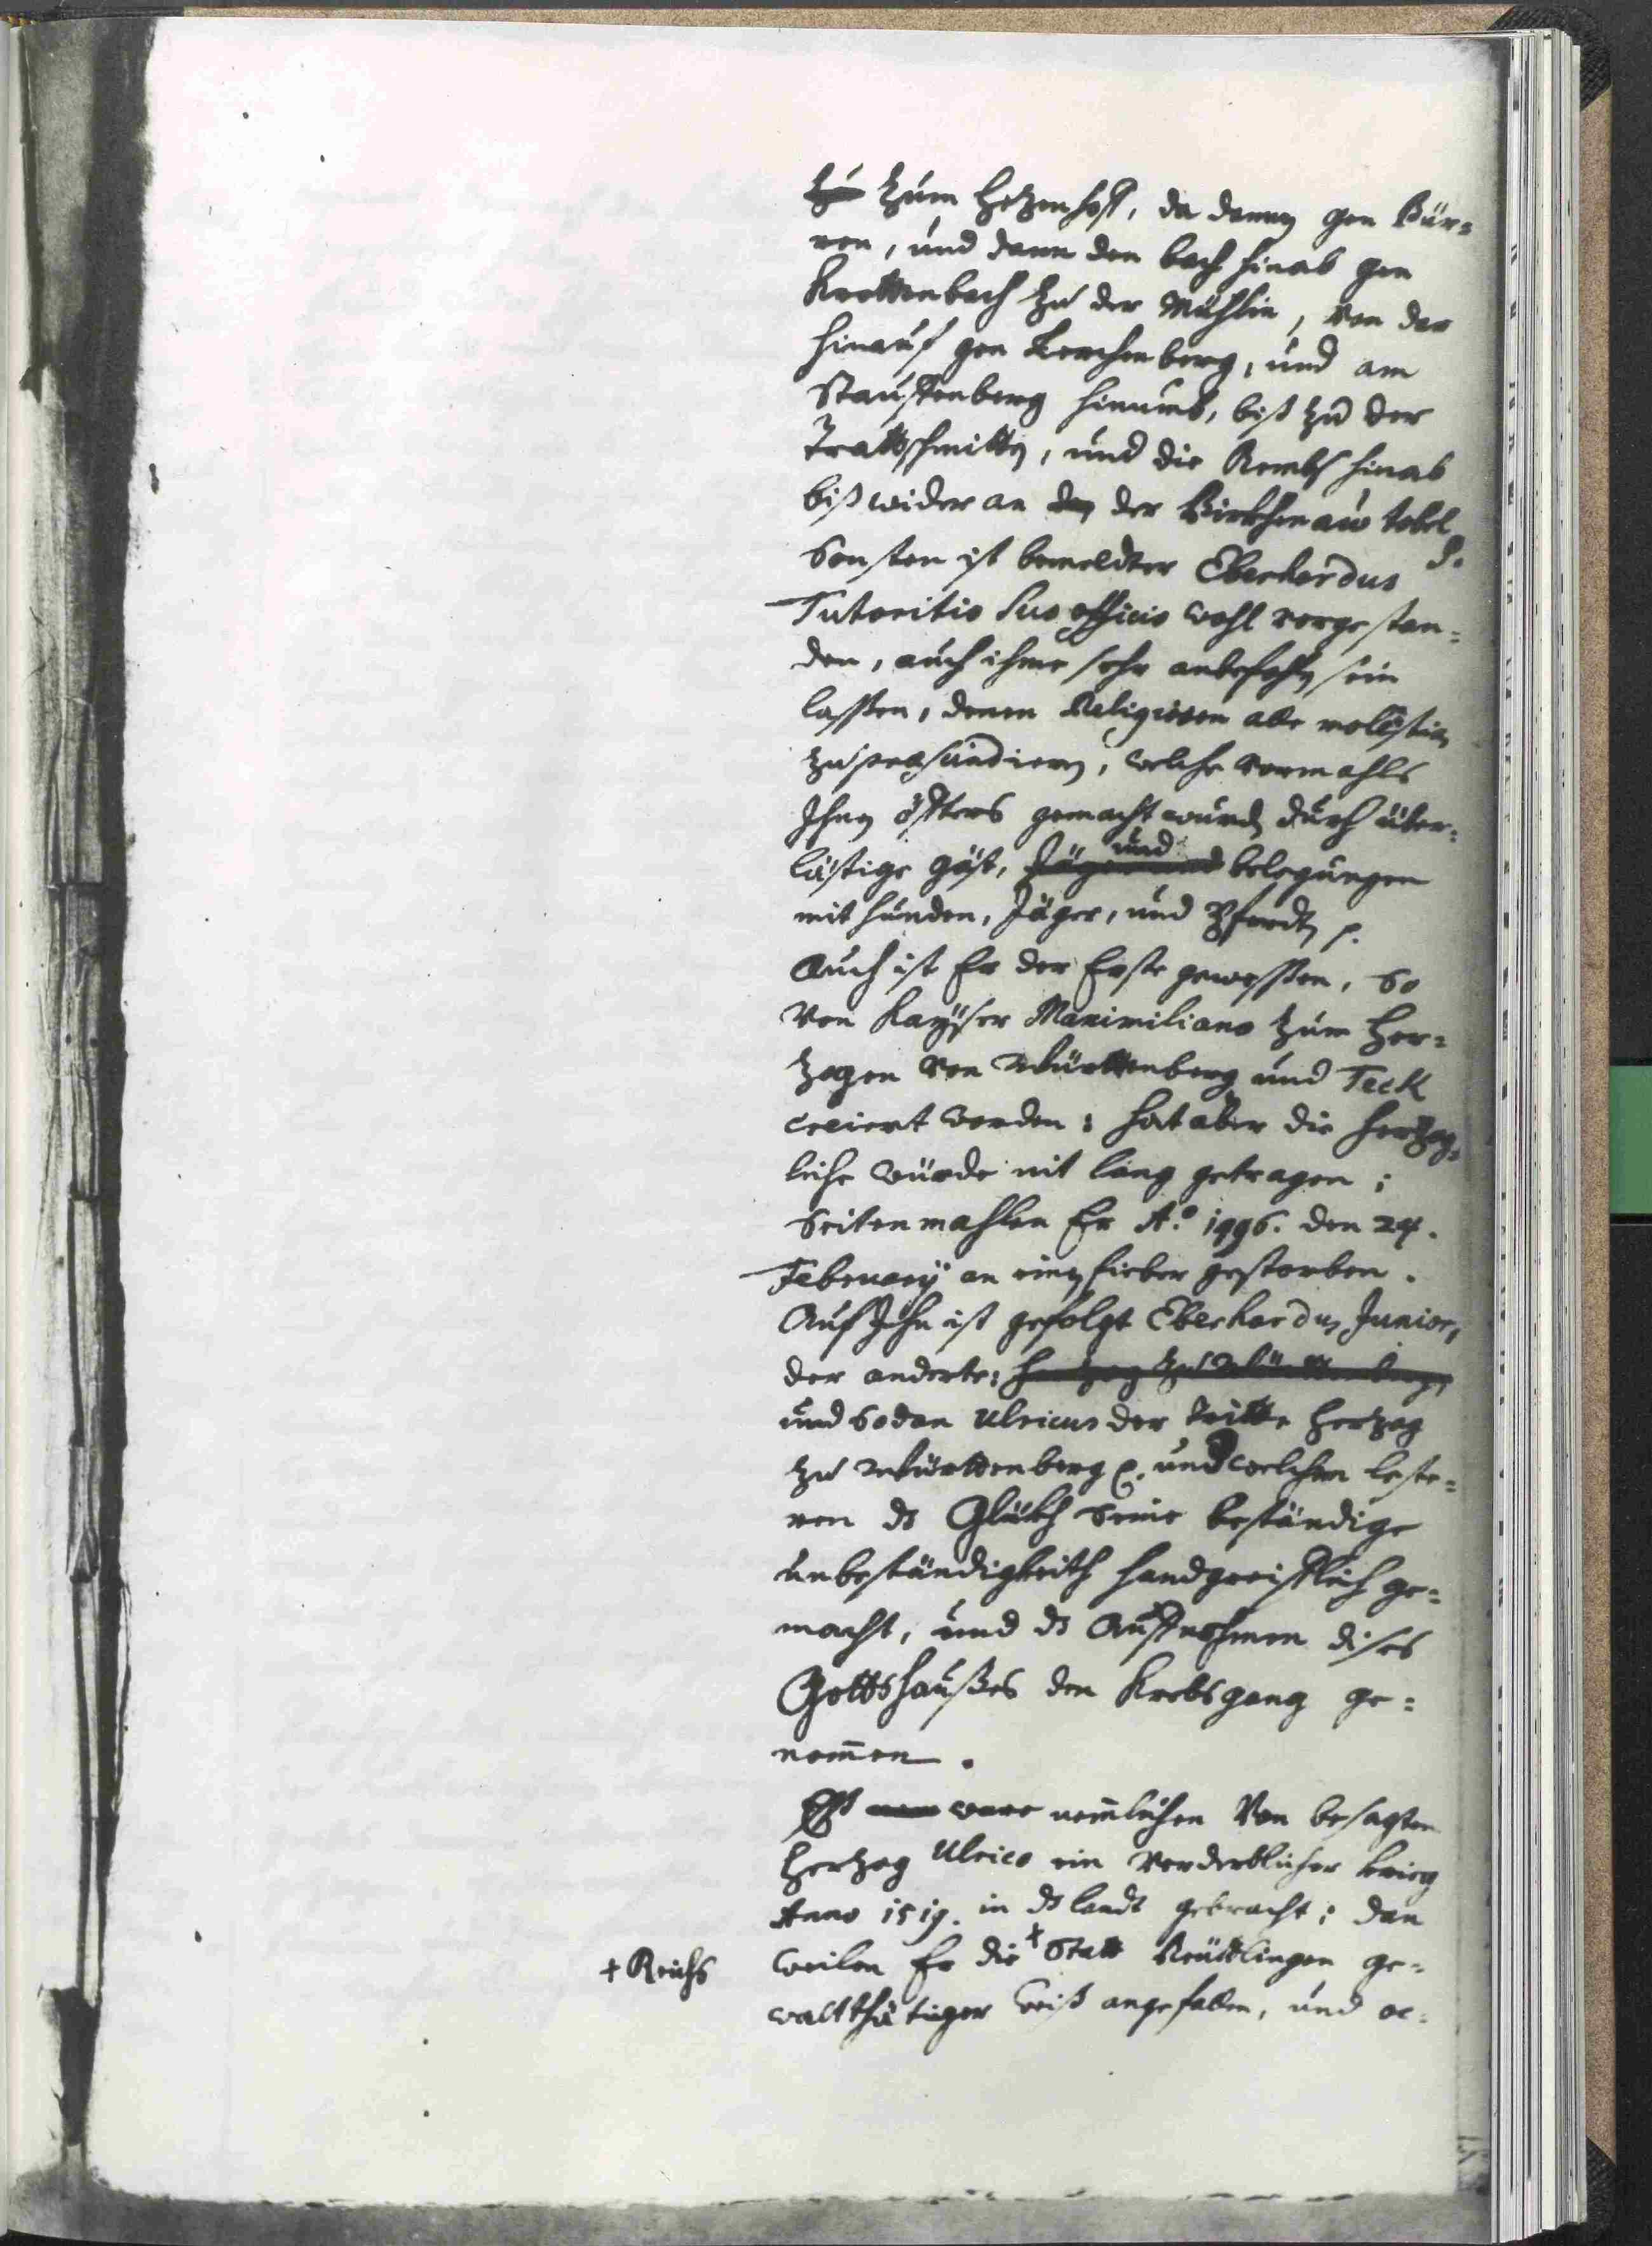 zu zum Hetzenhoff, da dannen gen Bür=
ren, und dann den bach hinab gen
Krettenbach zu der Mühlin, von dar
hinauf gen Lerchenberg, und am
Stauffenberg hinumb, biß zu der
Trattschmitten, und die Rembs hinab
biß wider an den der Birkhenaw tobel
Sonsten ist bemeldter Eberhardus
Tutoritio suo officio wohl vorgestan=
den, auch ihme sehr anbefohlen sein
lassen, denen Religiosen alle molestien
zu, welche vormahls
Ihnen öffters gemacht wurden durch über=
lästige gäst, Jäger und und belegungen
mit hunden, Jäger, und Pferdten p.
Auch ist Er der Erste gewessen, so
von Kayser Maximiliano zum Her=
zogen von Württenberg und Teck
creiert worden: hat aber die hertzog=
liche würde nit lang getragen;
Seitenmahlen Er Ao. 1496. den 24.
February an einem fieber gestorben.
Auf Ihn ist gefolgt Eberhardus Junior,
der anderte: Hertzog zu Württenberg,
und sodan Ulricus der tritte Hertzog
zu Württenberg p. und welchem leste=
ren ds Glükh seine beständige
unbeständigkeith handgreifflich ge=
macht, und ds Auffnehmen dises
Gottshaußes den Krebsgang ge=
nom̄en.
Eß ware nem̄lichen von besagten
Hertzog Ulrico ein verderblicher krieg
Anno 1519. in ds landt gebracht; dan
weilen Er die + Statt Reüttlingen ge=
+ Reichs
waltthätiger weiß angefallen, und oc=